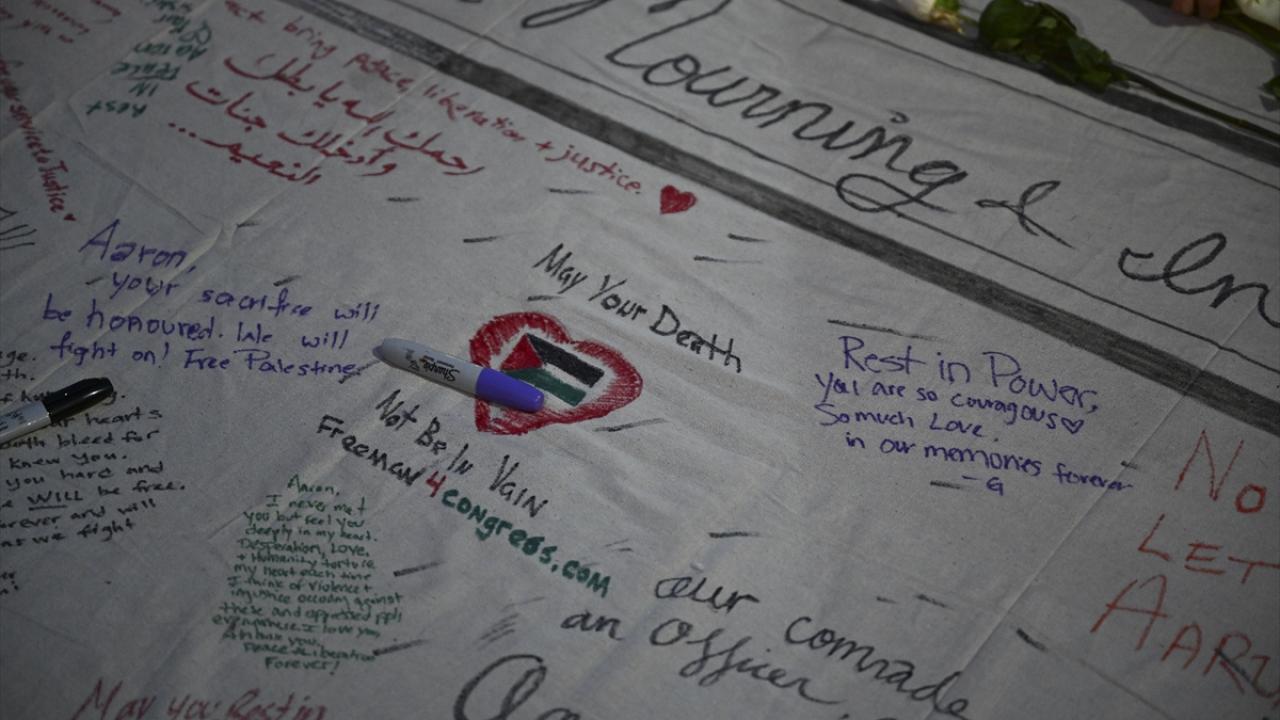 Mourning & In
act bring peace, liberation + justice.
رحمك الله يا بطل
وأدخلك جنات
النعيم...
Rest
IN
Peace
Aaron,
your sacrifice will
be honoured. We will
fight on! Free Palestine
May Your Death
Sharpie
Not Be In Vain
Freeman4congress.com
Rest in Power,
you are so couragous
So much Love.
in our memories forever
-G
service to Justice
hearts
bleed for
knew you.
you hard and
WILL be free.
and will
as we fight
Aaron,
I never met
you but feel you
deeply in my heart.
Desperation, Love,
+ Humanity torture
my heart each time
I think of violence +
injustice against
these and oppressed ppl
everywhere. I love you
Forever!
our comrade
an Officer,
No
LET
AARO
May you Rest in